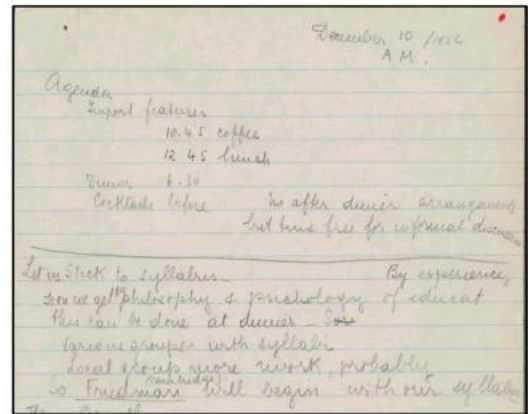 December 10 /1956
A.M.
Agenda
Import features
10.45 coffee
12 45 lunch
Dinner 6.30
Cocktails before No after dinner arrangements
but time free for informal discussion
Let us Stick to syllabus By experience,
soon we get to philosophy & psichology of educat
this can be done at dinner
Various groups with syllabi
Local group more work, probably
so Friedman will begin with our syllaby